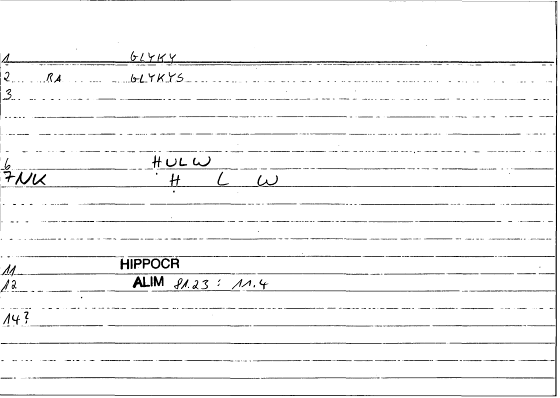 1 GLYKY
2 RA GLYKYS
3
6 ḤULW
7NK Ḥ L W
11 HIPPOCR
12 ALIM 81.23 : 11.4
14?